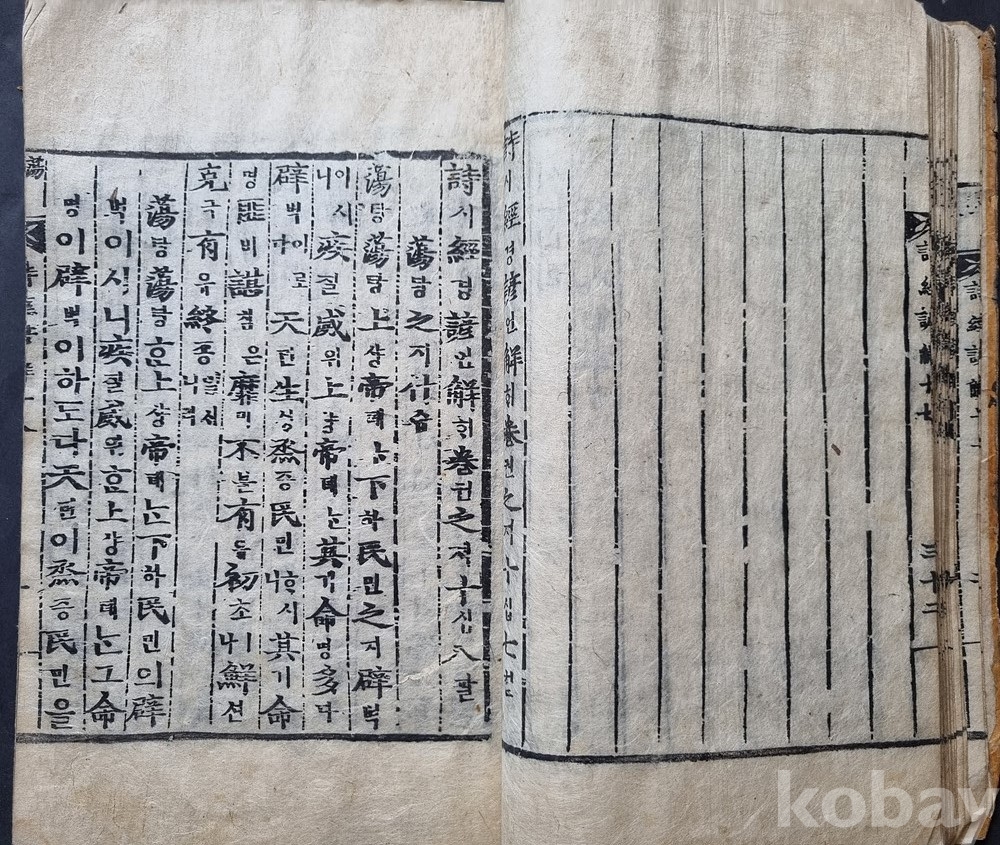 詩經諺解十七 三十二
詩시經경諺언解ᄒᆡ卷권之지十십七칠
詩시經경諺언解ᄒᆡ卷권之지十십八팔
蕩탕之지什습
蕩탕蕩탕上샹帝뎨ᄂᆞᆫ下하民민之지辟벽
이시니疾질威위上샹帝뎨ᄂᆞᆫ其기命명多다
辟벽이로다天텬生ᄉᆡᆼ烝증民민ᄒᆞ시니其기命
명匪비諶심은靡미不블有유初초ㅣ나鮮션
克극有유終죵일셔니라
蕩탕蕩탕ᄒᆞᆫ上샹帝뎨ᄂᆞᆫ下하民민의辟
벽이시니疾질威위ᄒᆞᆫ上샹帝뎨ᄂᆞᆫ그命
명이辟벽이하도다天텬이烝증民민을
蕩
kobay